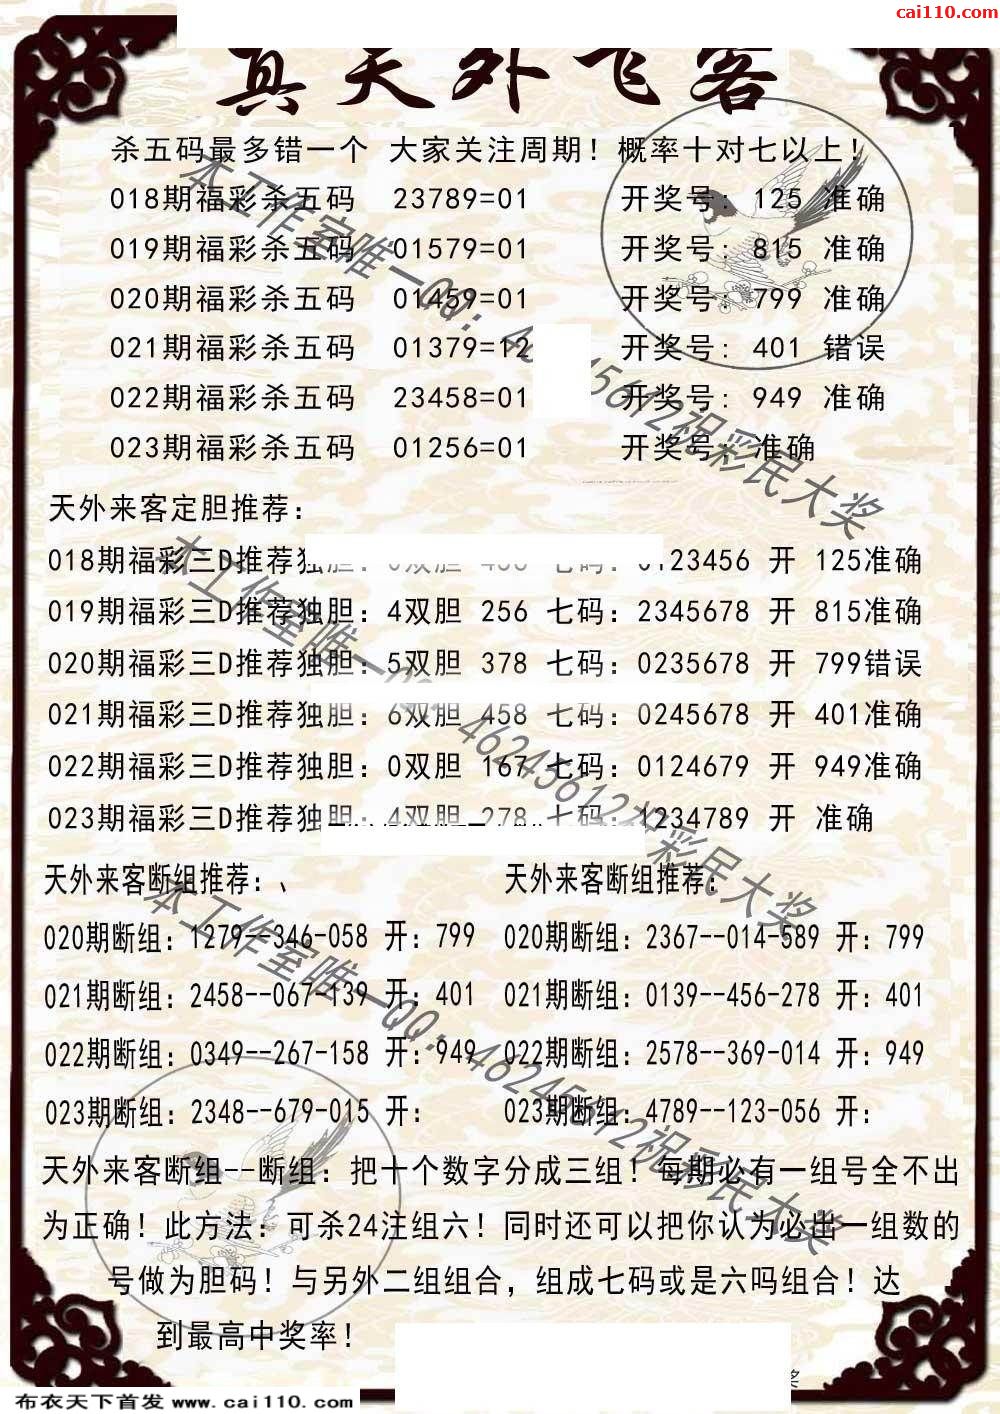 cai110.com
真天外飞客
杀五码最多错一个 大家关注周期！概率十对七以上！
018期福彩杀五码 23789=01 开奖号: 125 准确
019期福彩杀五码 01579=01 开奖号: 815 准确
020期福彩杀五码 01459=01 开奖号: 799 准确
021期福彩杀五码 01379=12 开奖号: 401 错误
022期福彩杀五码 23458=01 开奖号: 949 准确
023期福彩杀五码 01256=01 开奖号: 准确
天外来客定胆推荐：
018期福彩三D推荐独胆: 0双胆 七码: 0123456 开 125准确
019期福彩三D推荐独胆: 4双胆 256 七码: 2345678 开 815准确
020期福彩三D推荐独胆: 5双胆 378 七码: 0235678 开 799错误
021期福彩三D推荐独胆: 6双胆 458 七码: 0245678 开 401准确
022期福彩三D推荐独胆: 0双胆 167 七码: 0124679 开 949准确
023期福彩三D推荐独胆: 4双胆 278 七码: 1234789 开 准确
天外来客断组推荐：、 天外来客断组推荐：
020期断组: 1279--346-058 开: 799 020期断组: 2367--014-589 开: 799
021期断组: 2458--067-139 开: 401 021期断组: 0139--456-278 开: 401
022期断组: 0349--267-158 开: 949 022期断组: 2578--369-014 开: 949
023期断组: 2348--679-015 开: 023期断组: 4789--123-056 开:
天外来客断组--断组：把十个数字分成三组！每期必有一组号全不出
为正确！此方法：可杀24注组六！同时还可以把你认为必出一组数的
号做为胆码！与另外二组组合，组成七码或是六吗组合！达
到最高中奖率！
本工作室唯一QQ: 46245612祝彩民大奖
本工作室唯一QQ: 46245612祝彩民大奖
本工作室唯一QQ: 46245612祝彩民大奖
奖
布衣天下首发 www.cai110.com